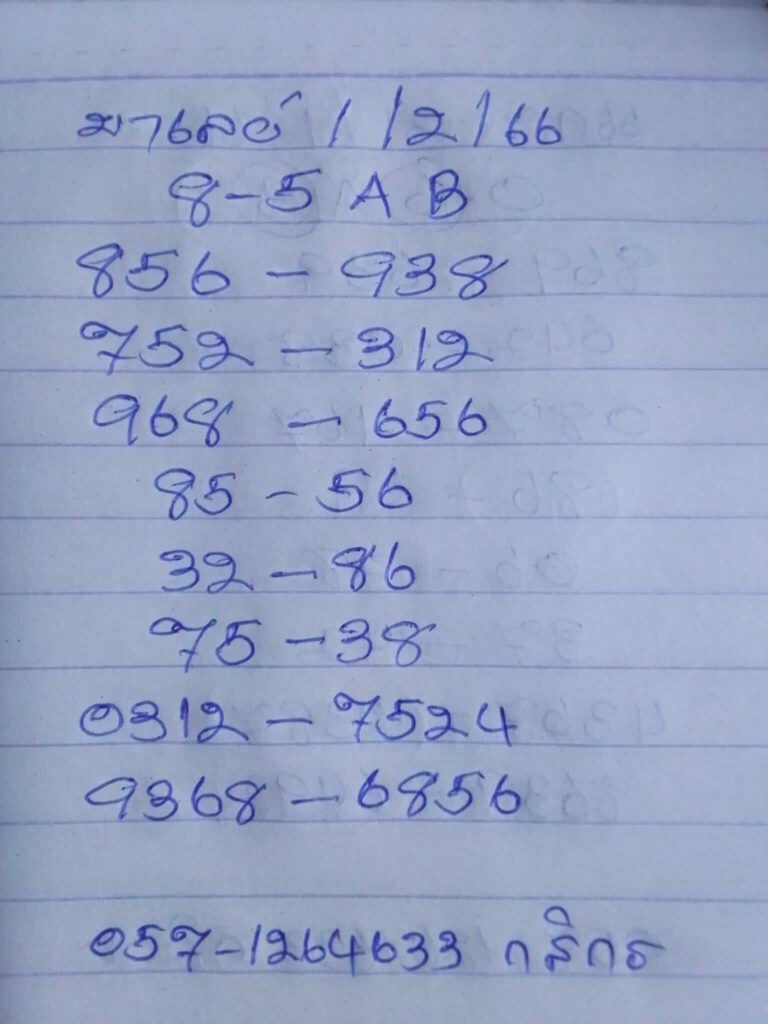 มาเลย์ 1/2/66
8-5 A B
856 - 938
752 - 312
968 - 656
85 - 56
32 - 86
75 - 38
0312 - 7524
9368 - 6856
057-1264633 กสิกร